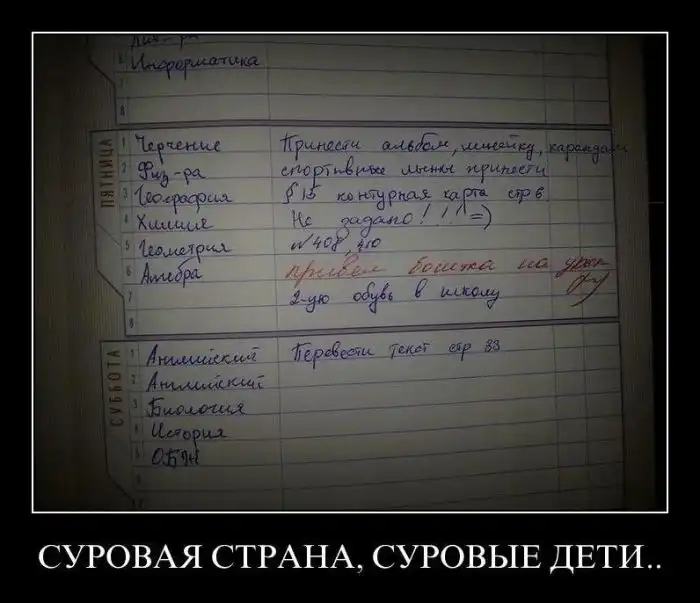 Информатика
8
ПЯТНИЦА
1 Черчение Принести альбом, линейку, карандаш
2 Физ-ра спортивные лыжи принести
3 География § 15 контурная карта стр 6
4 Химия Не задано!!! =)
5 Геометрия № 408, 410
6 Алгебра на урок
7 2-ую обувь в школу
8
СУББОТА
1 Английский Перевести текст стр 33
2 Английский
3 Биология
4 История
5 ОБЖ
СУРОВАЯ СТРАНА, СУРОВЫЕ ДЕТИ..